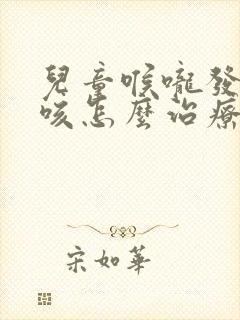 兒童喉嚨發
咳怎麼治療
宋如華